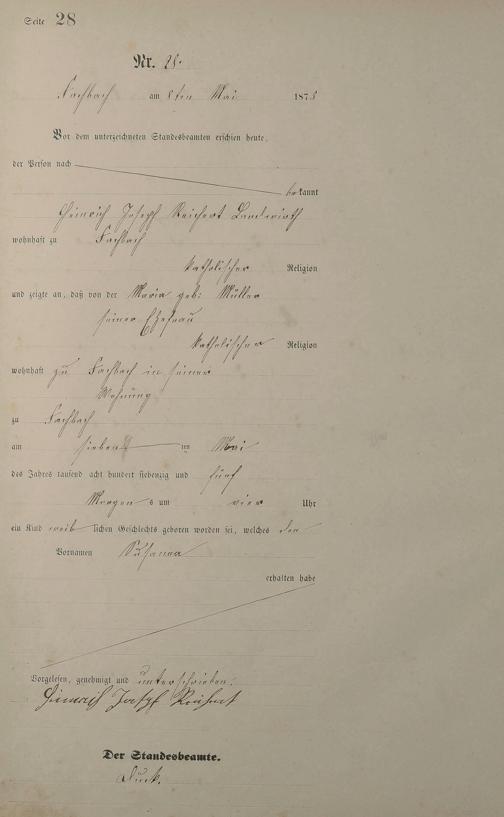 Seite 28
Nr. 28.
Fachbach am 8ten Mai 1875
Vor dem unterzeichneten Standesbeamten erschien heute,
der Person nach
bekannt
Heinrich Joseph Reichert Landwirth
wohnhaft zu Fachbach
katholischer Religion
und zeigte an, daß von der Maria geb: Müller
seiner Ehefrau
katholischer Religion
wohnhaft zu Fachbach in seiner
Wohnung
zu Fachbach
am sieben ten Mai
des Jahres tausend acht hundert siebenzig und fünf
Morgen s um vier Uhr
ein Kind weib lichen Geschlechts geboren worden sei, welches den
Vornamen Susanna
erhalten habe
Vorgelesen, genehmigt und unterschrieben.
Heinrich Joseph Reichert
Der Standesbeamte.